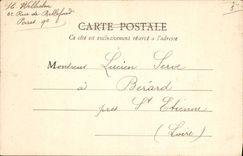 62 Rue de Bellefond
Paris 9e
CARTE POSTALE
Ce côté est exclusivement réservé à l'adresse
Monsieur Lucien Serve
à Bérard
près St Etienne
(Loire)